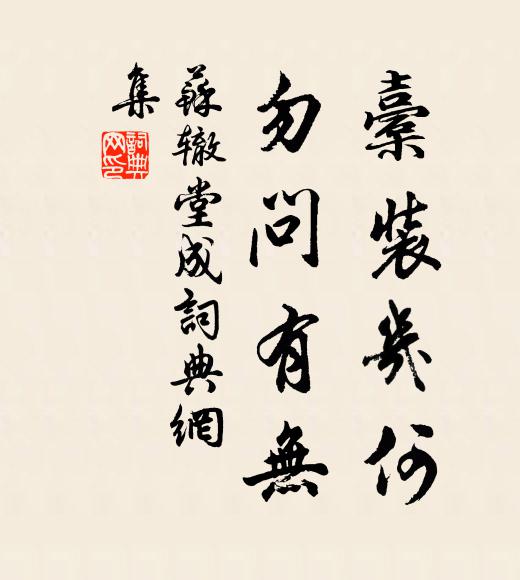 橐裝幾何
勿問有無
蘇辙堂成詞典網
集
詞典
网印